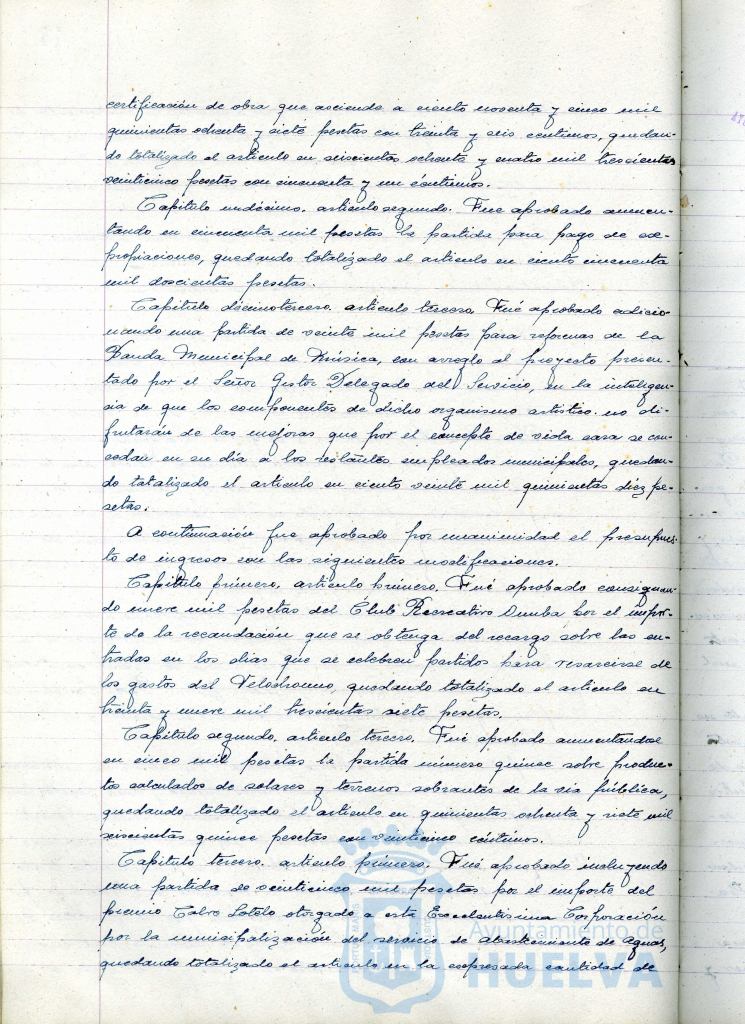 certificación de obra que asciende a ciento noventa y cinco mil
quinientas ochenta y siete pesetas con treinta y seis centimos, quedan-
do totalizado el articulo en seiscientas ochenta y cuatro mil trescientas
veinticinco pesetas con cincuenta y un céntimos.
Capitulo undécimo. articulo segundo. Fue aprobado aumen-
tando en cincuenta mil pesetas la partida para pago de ex-
propiaciones, quedando totalizado el articulo en ciento cincuenta
mil doscientas pesetas.
Capitulo décimotercero. articulo tercero. Fué aprobado adicio-
nando una partida de veinte mil pesetas para reformas de la
Banda Municipal de Música, con arreglo al proyecto presen-
tado por el Señor Gestor Delegado del Servicio, en la inteligen-
cia de que los componentes de dicho organismo artistico no di-
frutarán de las mejoras que por el concepto de vida cara se con-
cedan en su dia a los restantes empleados municipales, quedan-
do totalizado el articulo en ciento veinte mil quinientas diez pe-
setas.
A continuación fue aprobado por unanimidad el presupues-
to de ingresos con las siguientes modificaciones.
Capitulo primero. articulo primero. Fué aprobado consignan-
do nueve mil pesetas del Club Recreativo Onuba por el impor-
te de la recaudación que se obtenga del recargo sobre las en-
tradas en los dias que se celebren partidos para resarcirse de
los gastos del Velodromo, quedando totalizado el articulo en
treinta y nueve mil trescientas siete pesetas.
Capitulo segundo. articulo tercero. Fué aprobado aumentandose
en cinco mil pesetas la partida número quince sobre produc-
tos calculados de solares y terrenos sobrantes de la via pública,
quedando totalizado el articulo en quinientas ochenta y siete mil
seiscientas quince pesetas con veinticinco céntimos.
Capitulo tercero. articulo primero. Fué aprobado incluyendo
una partida de veinticinco mil pesetas por el importe del
premio Calvo Sotelo otorgado a esta Excelentisima Corporación
por la municipalización del servicio de abastecimiento de aguas,
quedando totalizado el articulo en la expresada cantidad de
Ayuntamiento de
HUELVA